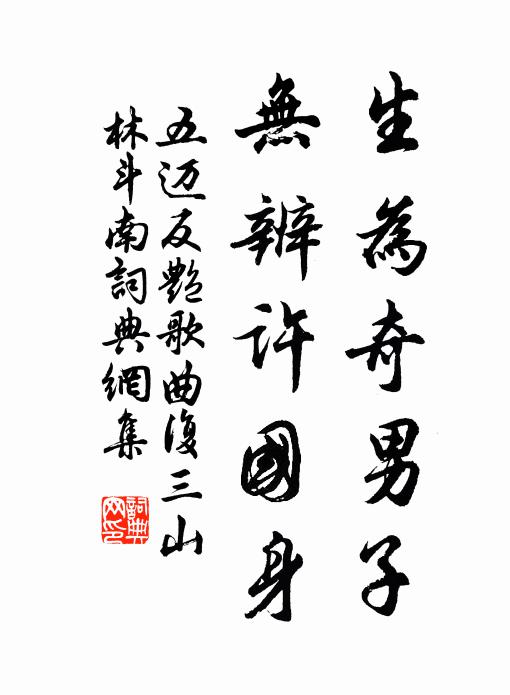 生為奇男子
無辨許國身
五迈反艷歌曲復三山
林斗南詞典網集
詞典
网印